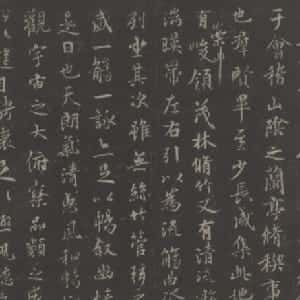 于會稽山陰之蘭亭脩稧事
也群賢畢至少長咸集此地
有崇山峻領茂林脩竹又有清流激
湍暎帶左右引以為流觴曲
列坐其次雖無絲竹管弦
盛一觴一詠亦足以暢敘幽情
是日也天朗氣清惠風和暢
觀宇宙之大俯察品類之盛
以遊目騁懷足以極視聽